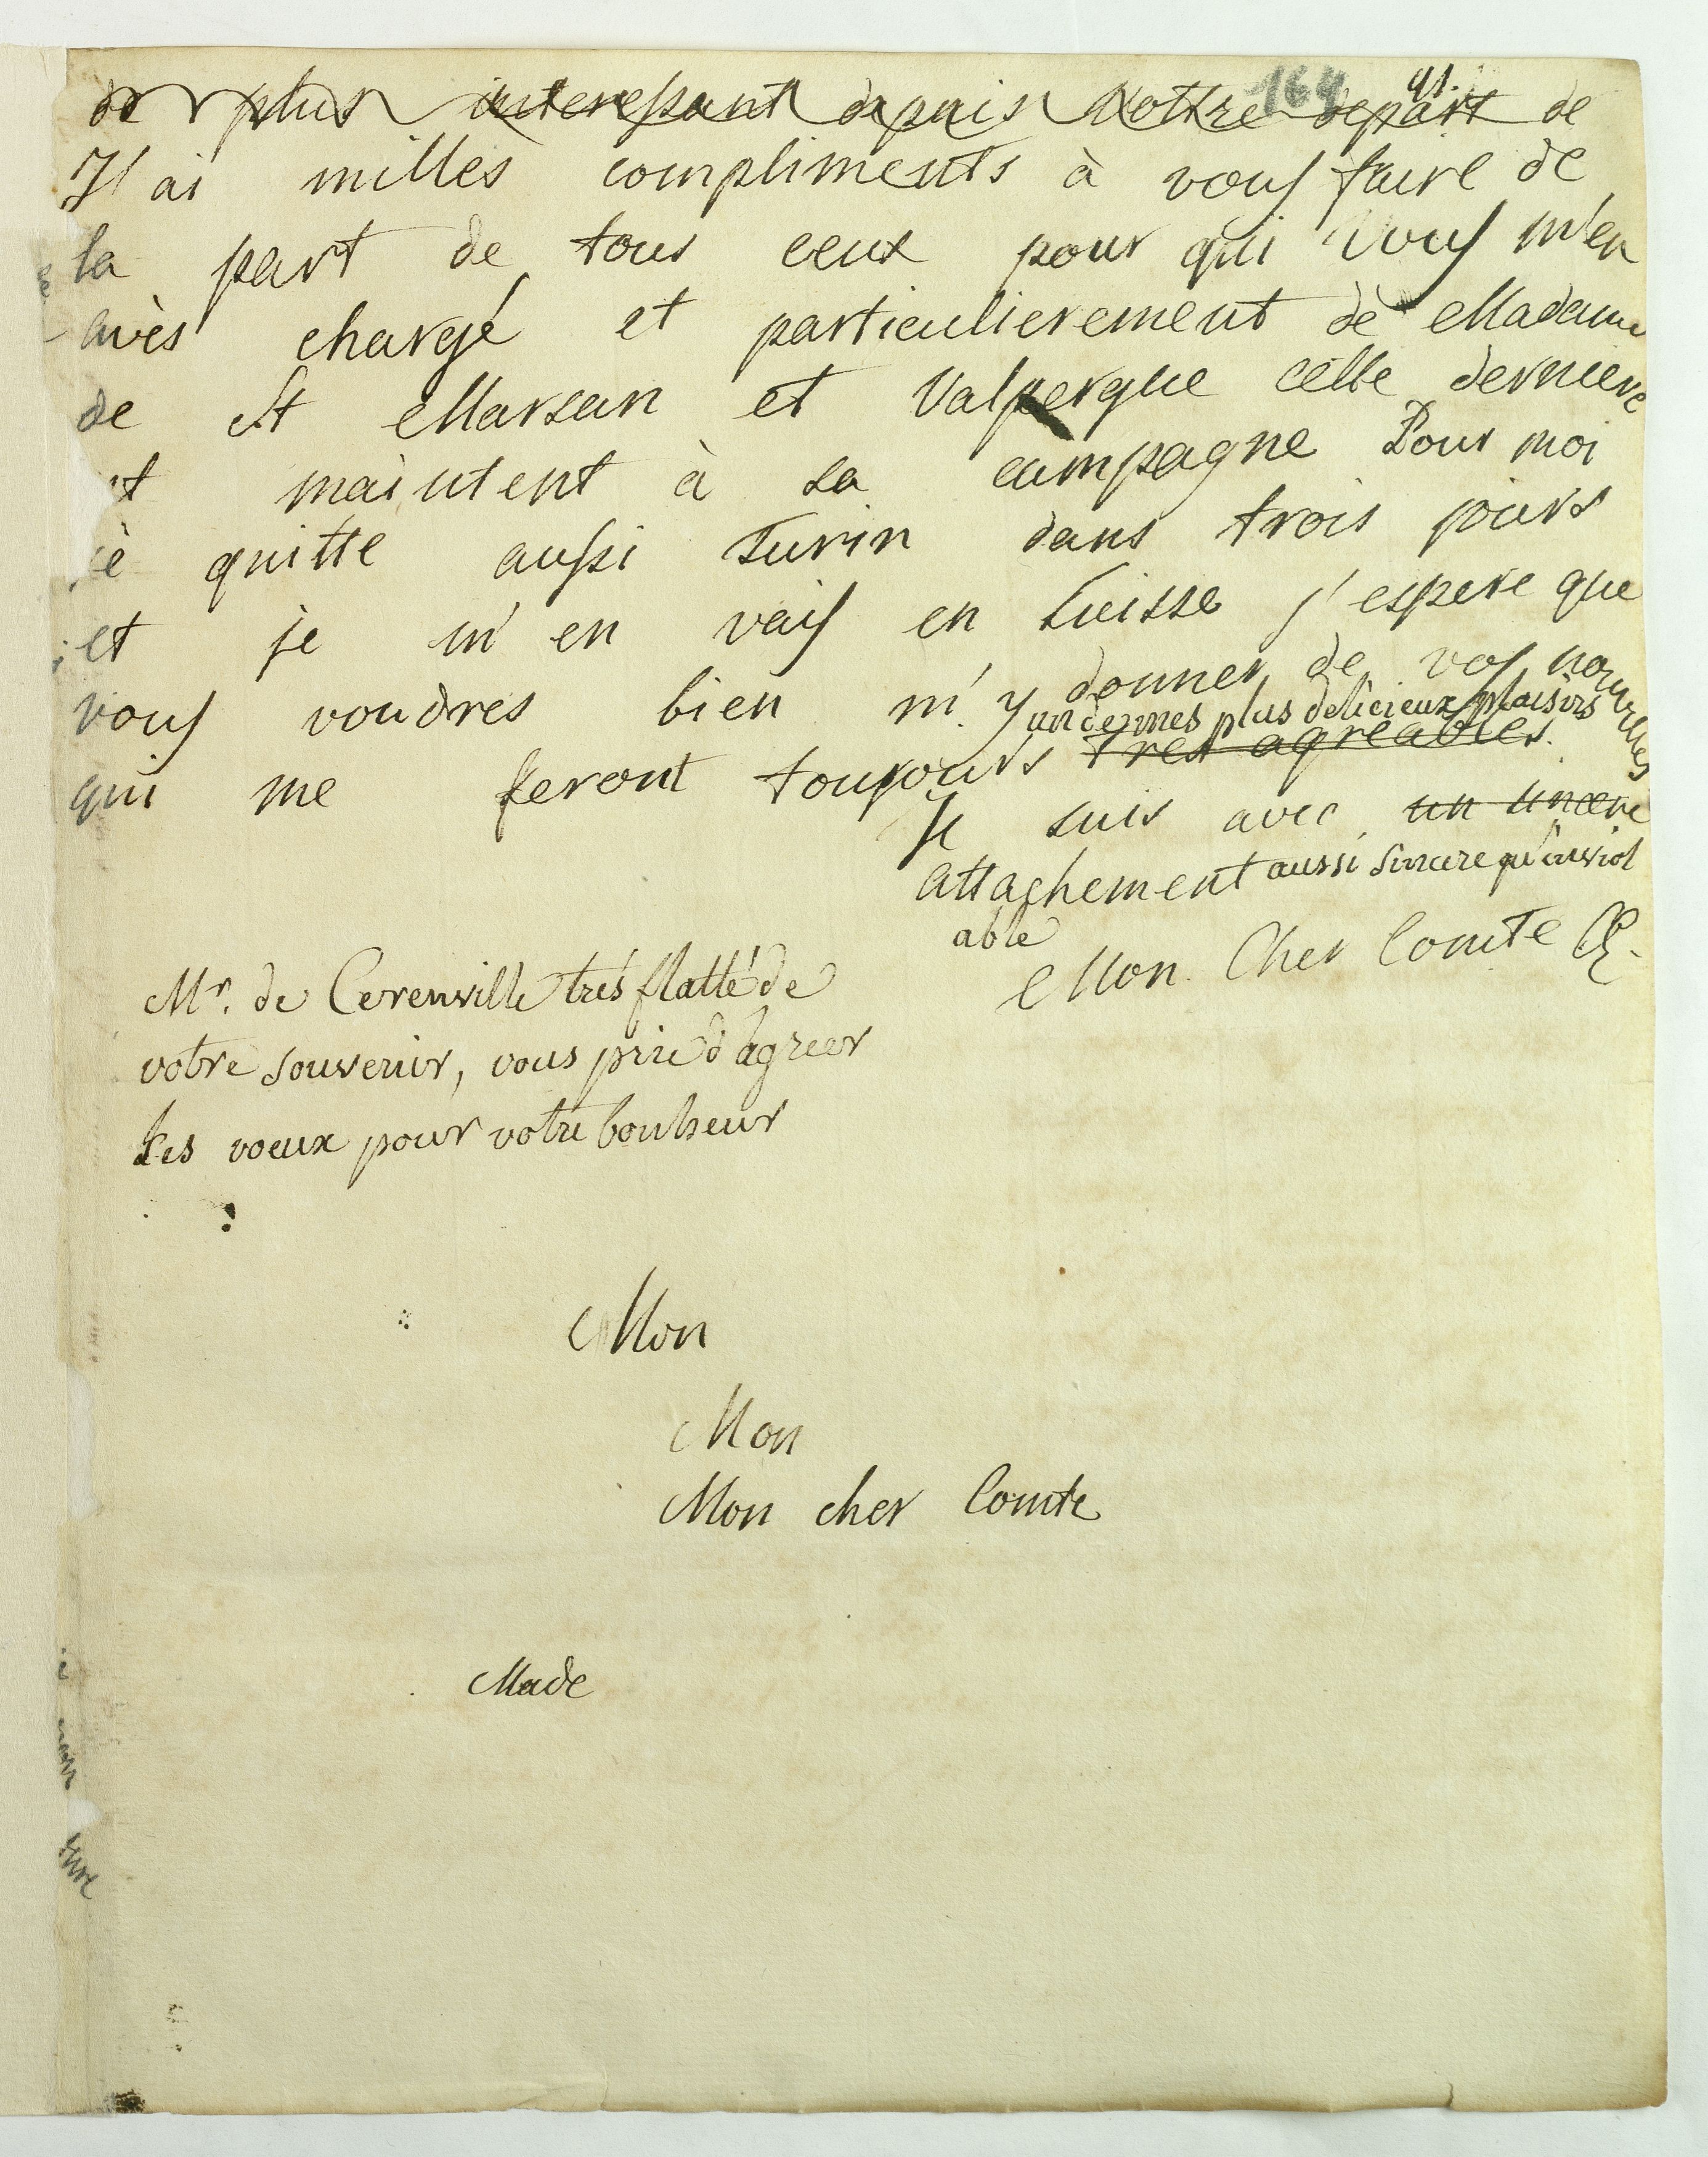 164 41.
de plus interessant depuis Nottre depart de
J'ai milles compliments à vous faire de
la part de tous ceux pour qui vous m'en
avès chargé et particulierement de Madame
de St Marsan et Valpergue cette derniere
st maintent à sa campagne Pour moi
je quitte aussi Turin dans trois jours
et je m'en vais en Suisse j'espere que
vous voudres bien m'y donner de vos nouvelles
un de mes plus delicieux plaisirs
qui me feront toujours tres agreables.
Je suis avec un sincere
attachement aussi sincere qu'inviol
able
Mon Cher Comte &.
Mr. de Cerenville trés flatté de
votre souvenir, vous prie d'agreer
ses voeux pour votre bonheur
Mon
Mon
Mon cher Comte
Made